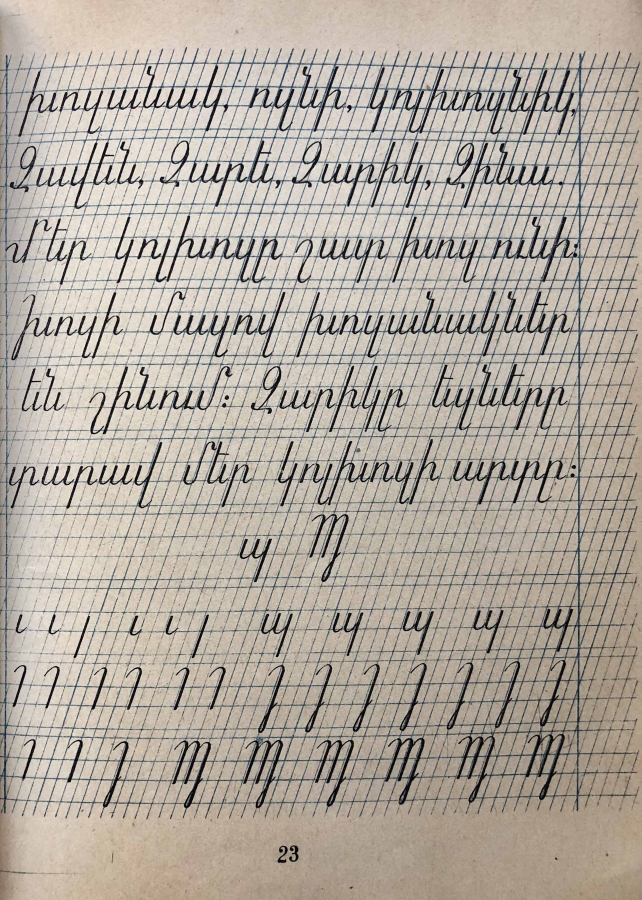 խոզանակ, ոզնի, կոլխոզնիկ,
Զավեն, Զարե, Զարիկ, Զինա.
Մեր կոլխոզը շատ խոզ ունի:
Խոզի մազով խոզանակներ
են շինում: Զարիկը եզները
տարավ մեր կոլխոզի արտը:
պ Պ
պ պ պ պ պ
Պ Պ Պ Պ Պ Պ
23